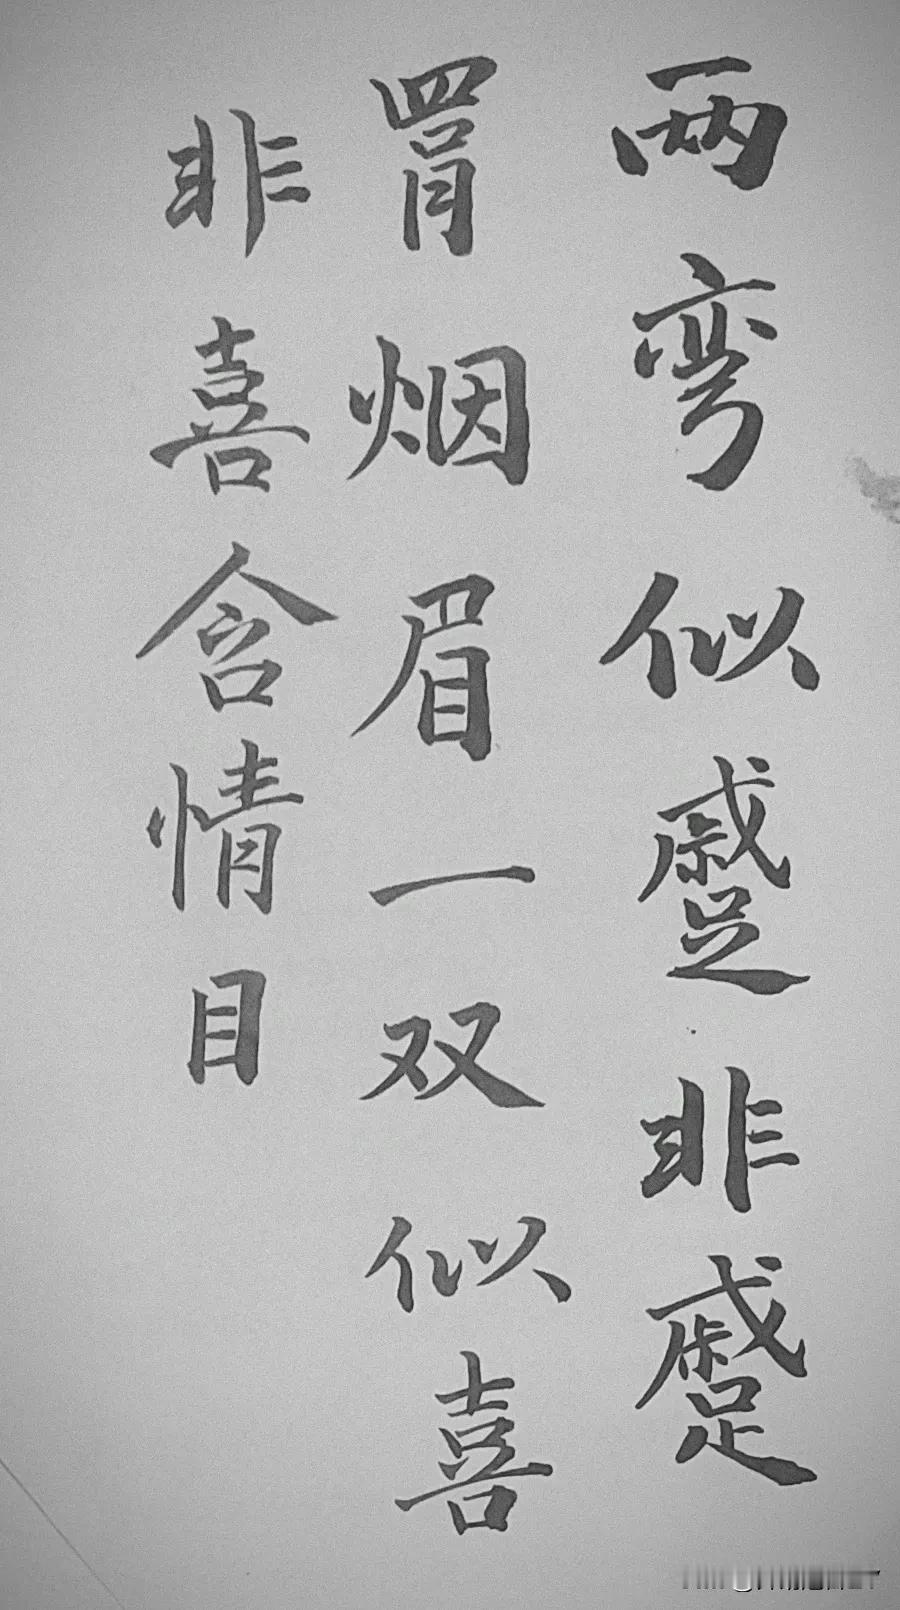 两弯似蹙非蹙
罥烟眉一双似喜
非喜含情目